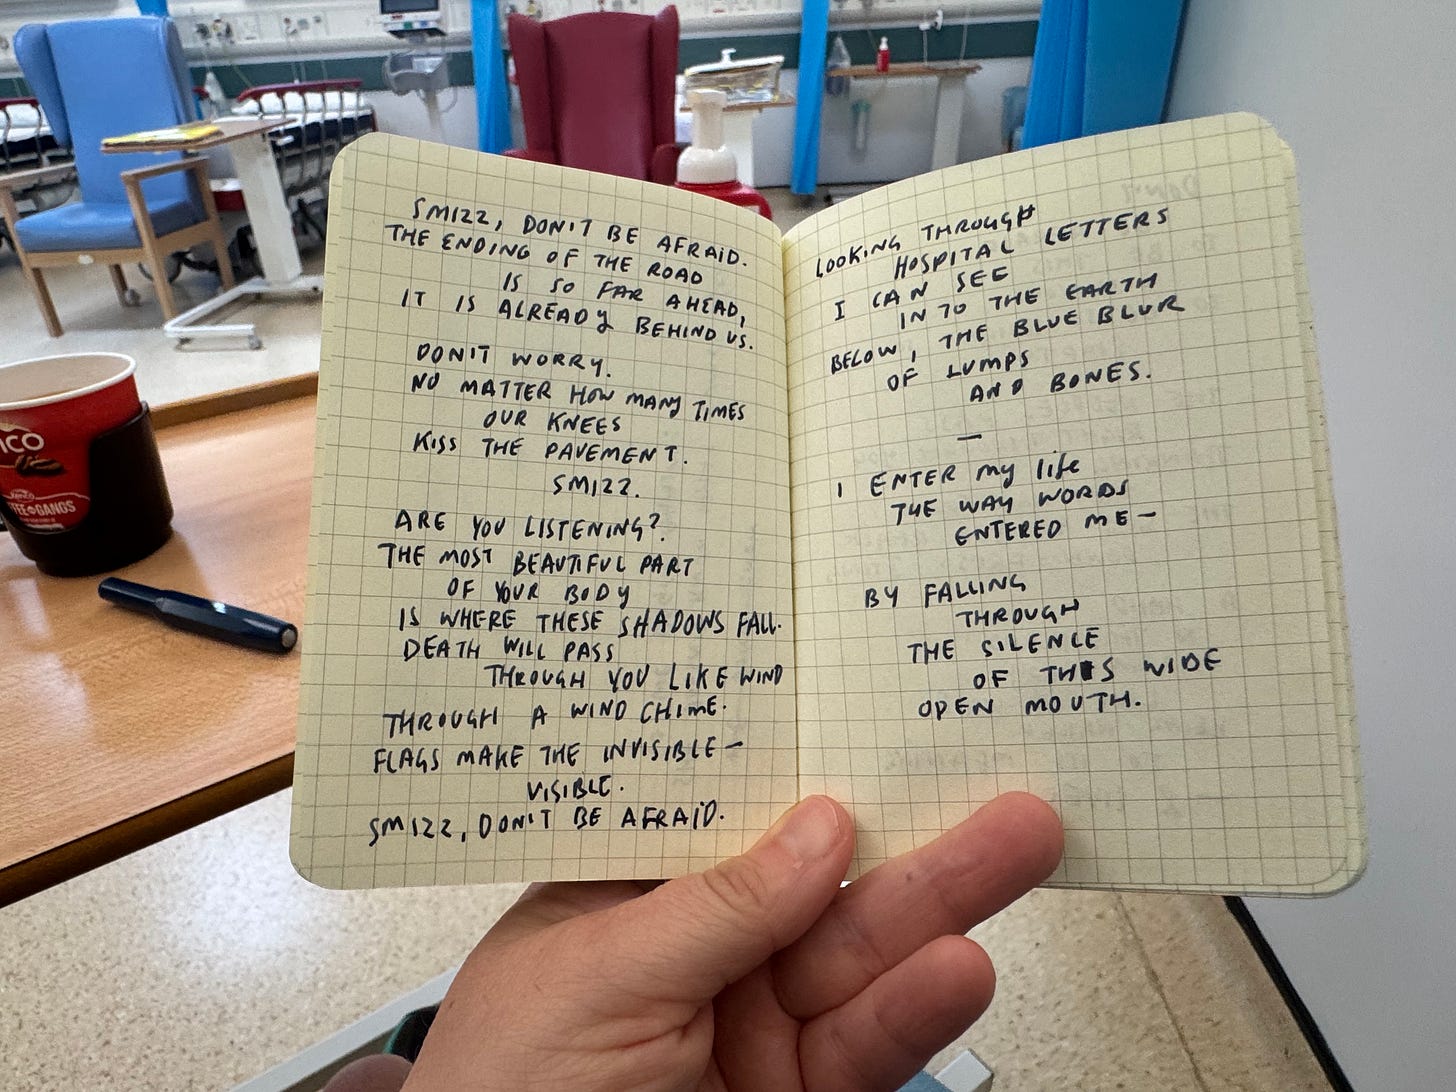 SMIZZ, DON'T BE AFRAID.
THE ENDING OF THE ROAD
IS SO FAR AHEAD,
IT IS ALREADY BEHIND US.
DON'T WORRY.
NO MATTER HOW MANY TIMES
OUR KNEES
KISS THE PAVEMENT.
SMIZZ.
ARE YOU LISTENING?
THE MOST BEAUTIFUL PART
OF YOUR BODY
IS WHERE THESE SHADOWS FALL.
DEATH WILL PASS
THROUGH YOU LIKE WIND
THROUGH A WIND CHIME.
FLAGS MAKE THE INVISIBLE —
VISIBLE.
SMIZZ, DON'T BE AFRAID.
LOOKING THROUGH
HOSPITAL LETTERS
I CAN SEE
IN TO THE EARTH
BELOW, THE BLUE BLUR
OF LUMPS
AND BONES.
—
I ENTER my life
THE WAY WORDS
ENTERED ME —
BY FALLING
THROUGH
THE SILENCE
OF THIS WIDE
OPEN MOUTH.